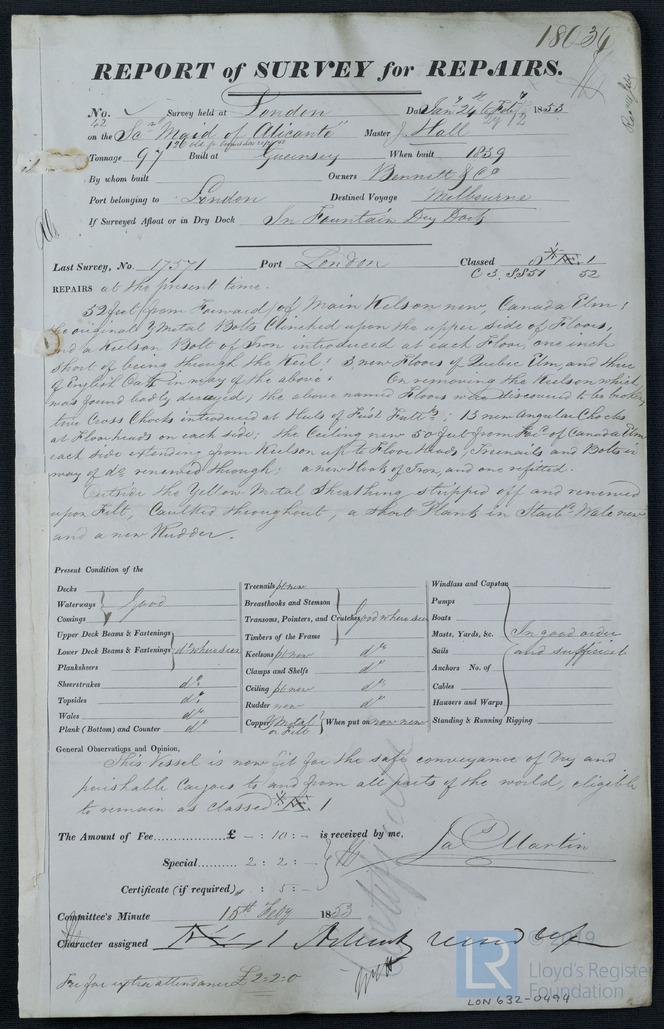 18036
REPORT of SURVEY for REPAIRS.
No. Survey held at London Date Jany 24 to Feby 1853
42 on the Sc "Maid of Alicante" Master J. Hall
Tonnage 97 Built at Guernsey When built 1839
By whom built Owners Bennett & Co
Port belonging to London Destined Voyage Melbourne
If Surveyed Afloat or in Dry Dock In Fountain Dry Dock
Last Survey, No. 17571 Port London Classed 1
C 3. SS51 52
REPAIRS at the present time.
52 feet (from Forward) of Main Kelson new, Canada Elm;
the original Y Metal Bolts Clinched upon the upper side of Floors,
and a Keelson Bolt of Iron introduced at each Floor, one inch
short of being through the Keel; 3 new Floors of Quebec Elm, and three
of English Oak in way of the above; On removing the Keelson which
was found badly decayed, the above named Floors was discovered to be broken,
two Cross Chocks introduced at Heels of First Futts; 13 new Angular Chocks
at Floorheads on each side; the Ceiling new 50 feet from Ford of Canada Elm
each side extending from Keelson up to Floor Heads, Treenails and Bolts in
way of do renewed through; a new Hook of Iron, and one refitted.
Outside the Yellow Metal Sheathing stripped off and renewed
upon Felt, Caulked throughout, a short Plank in Starbd Wale new
and a new Rudder.
Present Condition of the
Decks
Waterways Good
Comings
Upper Deck Beams & Fastenings
Lower Deck Beams & Fastenings do where seen
Planksheers
Sheerstrakes do
Topsides do
Wales do
Plank (Bottom) and Counter do
Treenails pt new
Breasthooks and Stemson
Transoms, Pointers, and Crutches Good where seen
Timbers of the Frame
Keelsons pt new do
Clamps and Shelfs do
Ceiling pt new do
Rudder new do
Copper Y Metal on Felt When put on now new
Windlass and Capstan
Pumps
Boats
Masts, Yards, &c. In good order
Sails and sufficient
Anchors No. of
Cables
Hawsers and Warps
Standing & Running Rigging
General Observations and Opinion,
This Vessel is now fit for the safe conveyance of Dry and
perishable Cargoes to and from all parts of the world, eligible
to remain as classed 1
The Amount of Fee............... £ - : 10 : - is received by me,
Special......... 2 : 2 : - Jas Martin
Certificate (if required) - : 5 : -
Committee's Minute 15th Feby 1853
Character assigned 1
Fee for extra attendance £2=2=0
LR © 2019
Lloyd's Register
Foundation
LON 632-0494